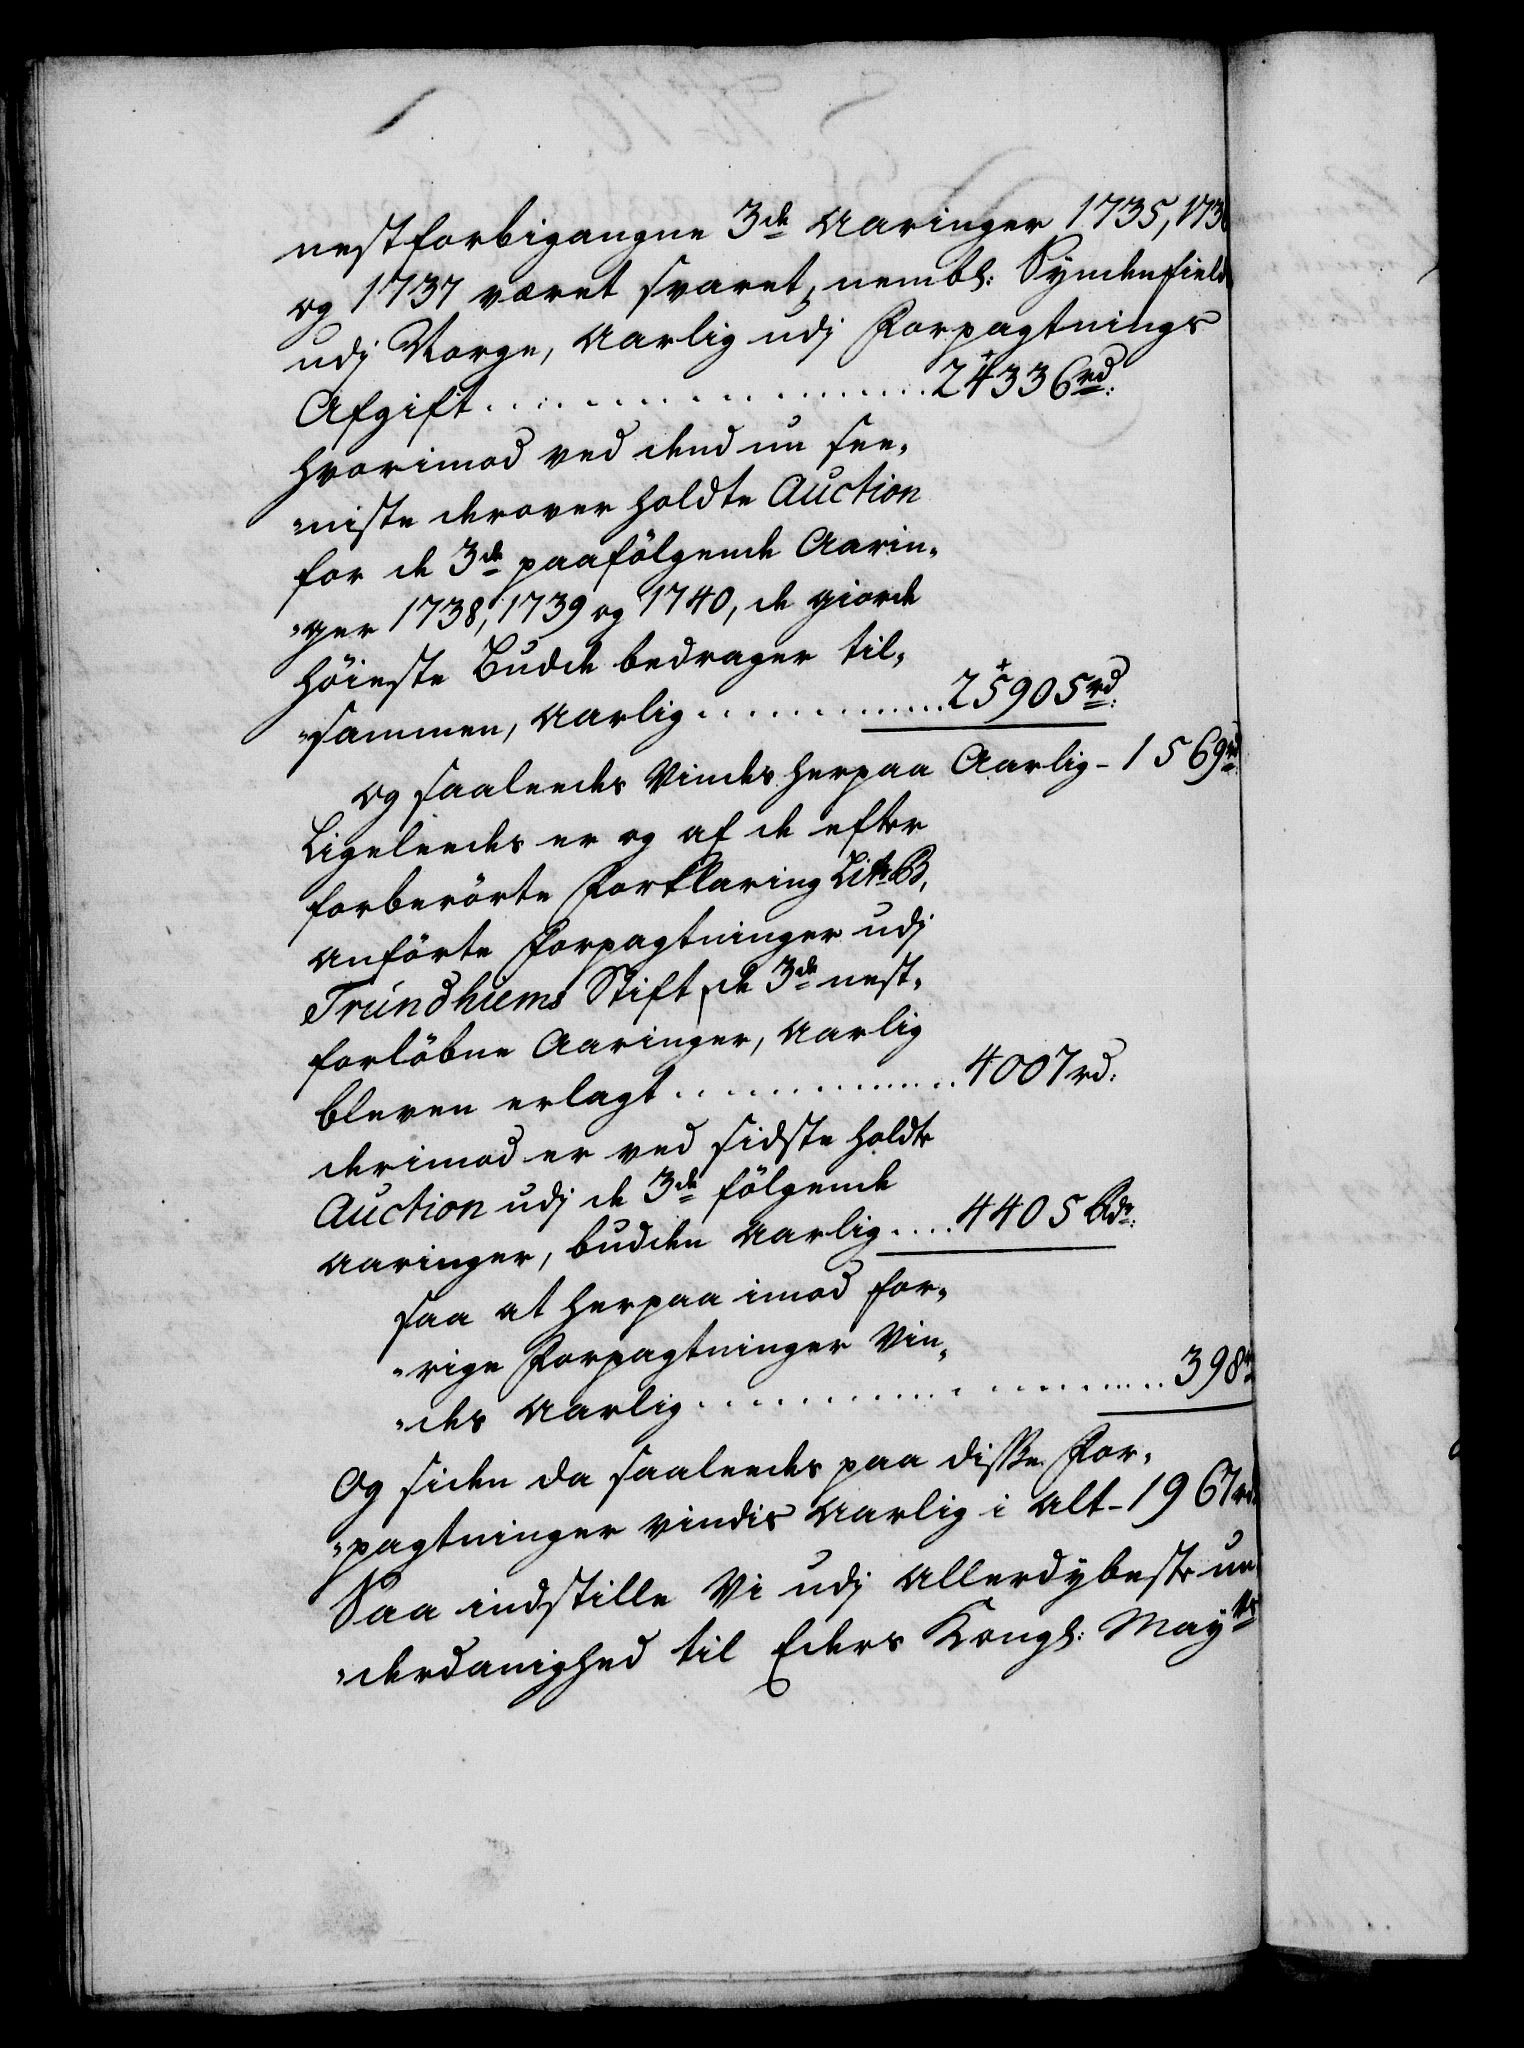 nestforbigangne 3de Aaringer 1735, 1736
og 1737 været svaret, nembl: Syndenfields
udj Norge, Aarlig udj Forpagtnings
Afgift . . . . . . . . . . . . 24336 rd:
hvorimod ved dend nu see,
"niste derover holdte Auction
for de 3de paafölgende Aarin,
"ger 1738, 1739 og 1740, de giorde
höieste Budde bedrager til,
"sammen, Aarlig . . . . . . . . . 25905 rd:
og saaleedes Vindes herpaa Aarlig - 1569 rd
Ligeleedes er og af de efter
forberörte Forklaring Litr B,
anförte Forpagtninger udj
Trundhiems Stift, de 3de nest,
forlöbne Aaringer, Aarlig
bleven erlagt . . . . . . . . . . 4007 rd:
derimod er ved sidste holdte
Auction udj de 3de fölgende
Aaringer, budden Aarlig . . . . 4405 Rdr:
saa at herpaa imod for,
"rige Forpagtninger Vin,
"des Aarlig . . . . . . . . . . . . . . . . 398 rd
Og siden da saaleedes paa disse For,
"pagtninger vindis Aarlig i Alt - 1967 rd.
Saa indstille Vi udj Allerdybeste un
"derdanighed til Eders Kongl: Mayts